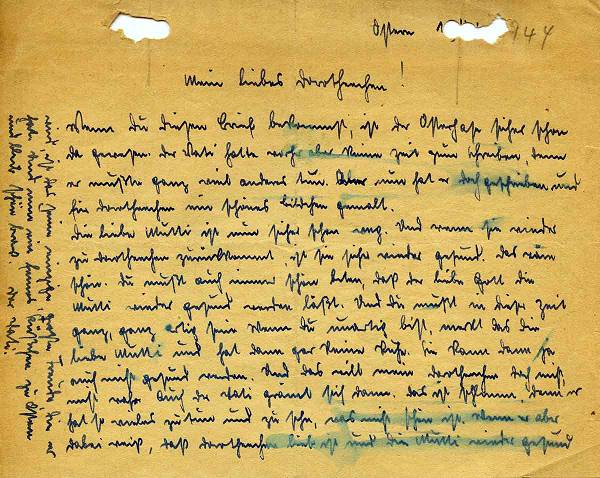 Ostern 1944
Mein liebes Dorothechen!
Wenn Du diesen Brief bekommst, ist der Osterhase sicher schon
da gewesen. Der Vati hatte aber keine Zeit zum schreiben, denn
er mußte ganz viel anderes tun. Aber nun hat er doch geschrieben, und
für Dorothechen ein schönes Bildchen gemalt.
Die liebe Mutti ist nun sicher schon weg. Und wenn sie wieder
zu Dorothechen zurückkommt, ist sie sicher wieder gesund. Das wäre
schön. Du mußt auch immer schön beten, daß der liebe Gott die
Mutti wieder gesund werden läßt. Und Du mußt in dieser Zeit
ganz, ganz artig sein. Wenn Du unartig bist, merkt das die
liebe Mutti und hat dann gar keine Ruhe. Sie kann dann ja
auch nicht gesund werden. Und das will mein Dorothechen doch nicht,
nicht wahr. Auch der Vati grämt sich dann. Das ist schlimm, denn er
hat so vieles zu tun und zu sehn, was nicht schön ist. Wenn er aber
dabei weiß, daß Dorothechen lieb ist und die Mutti wieder gesund
große Freude die er
zu Ostern
und bleib schön brav